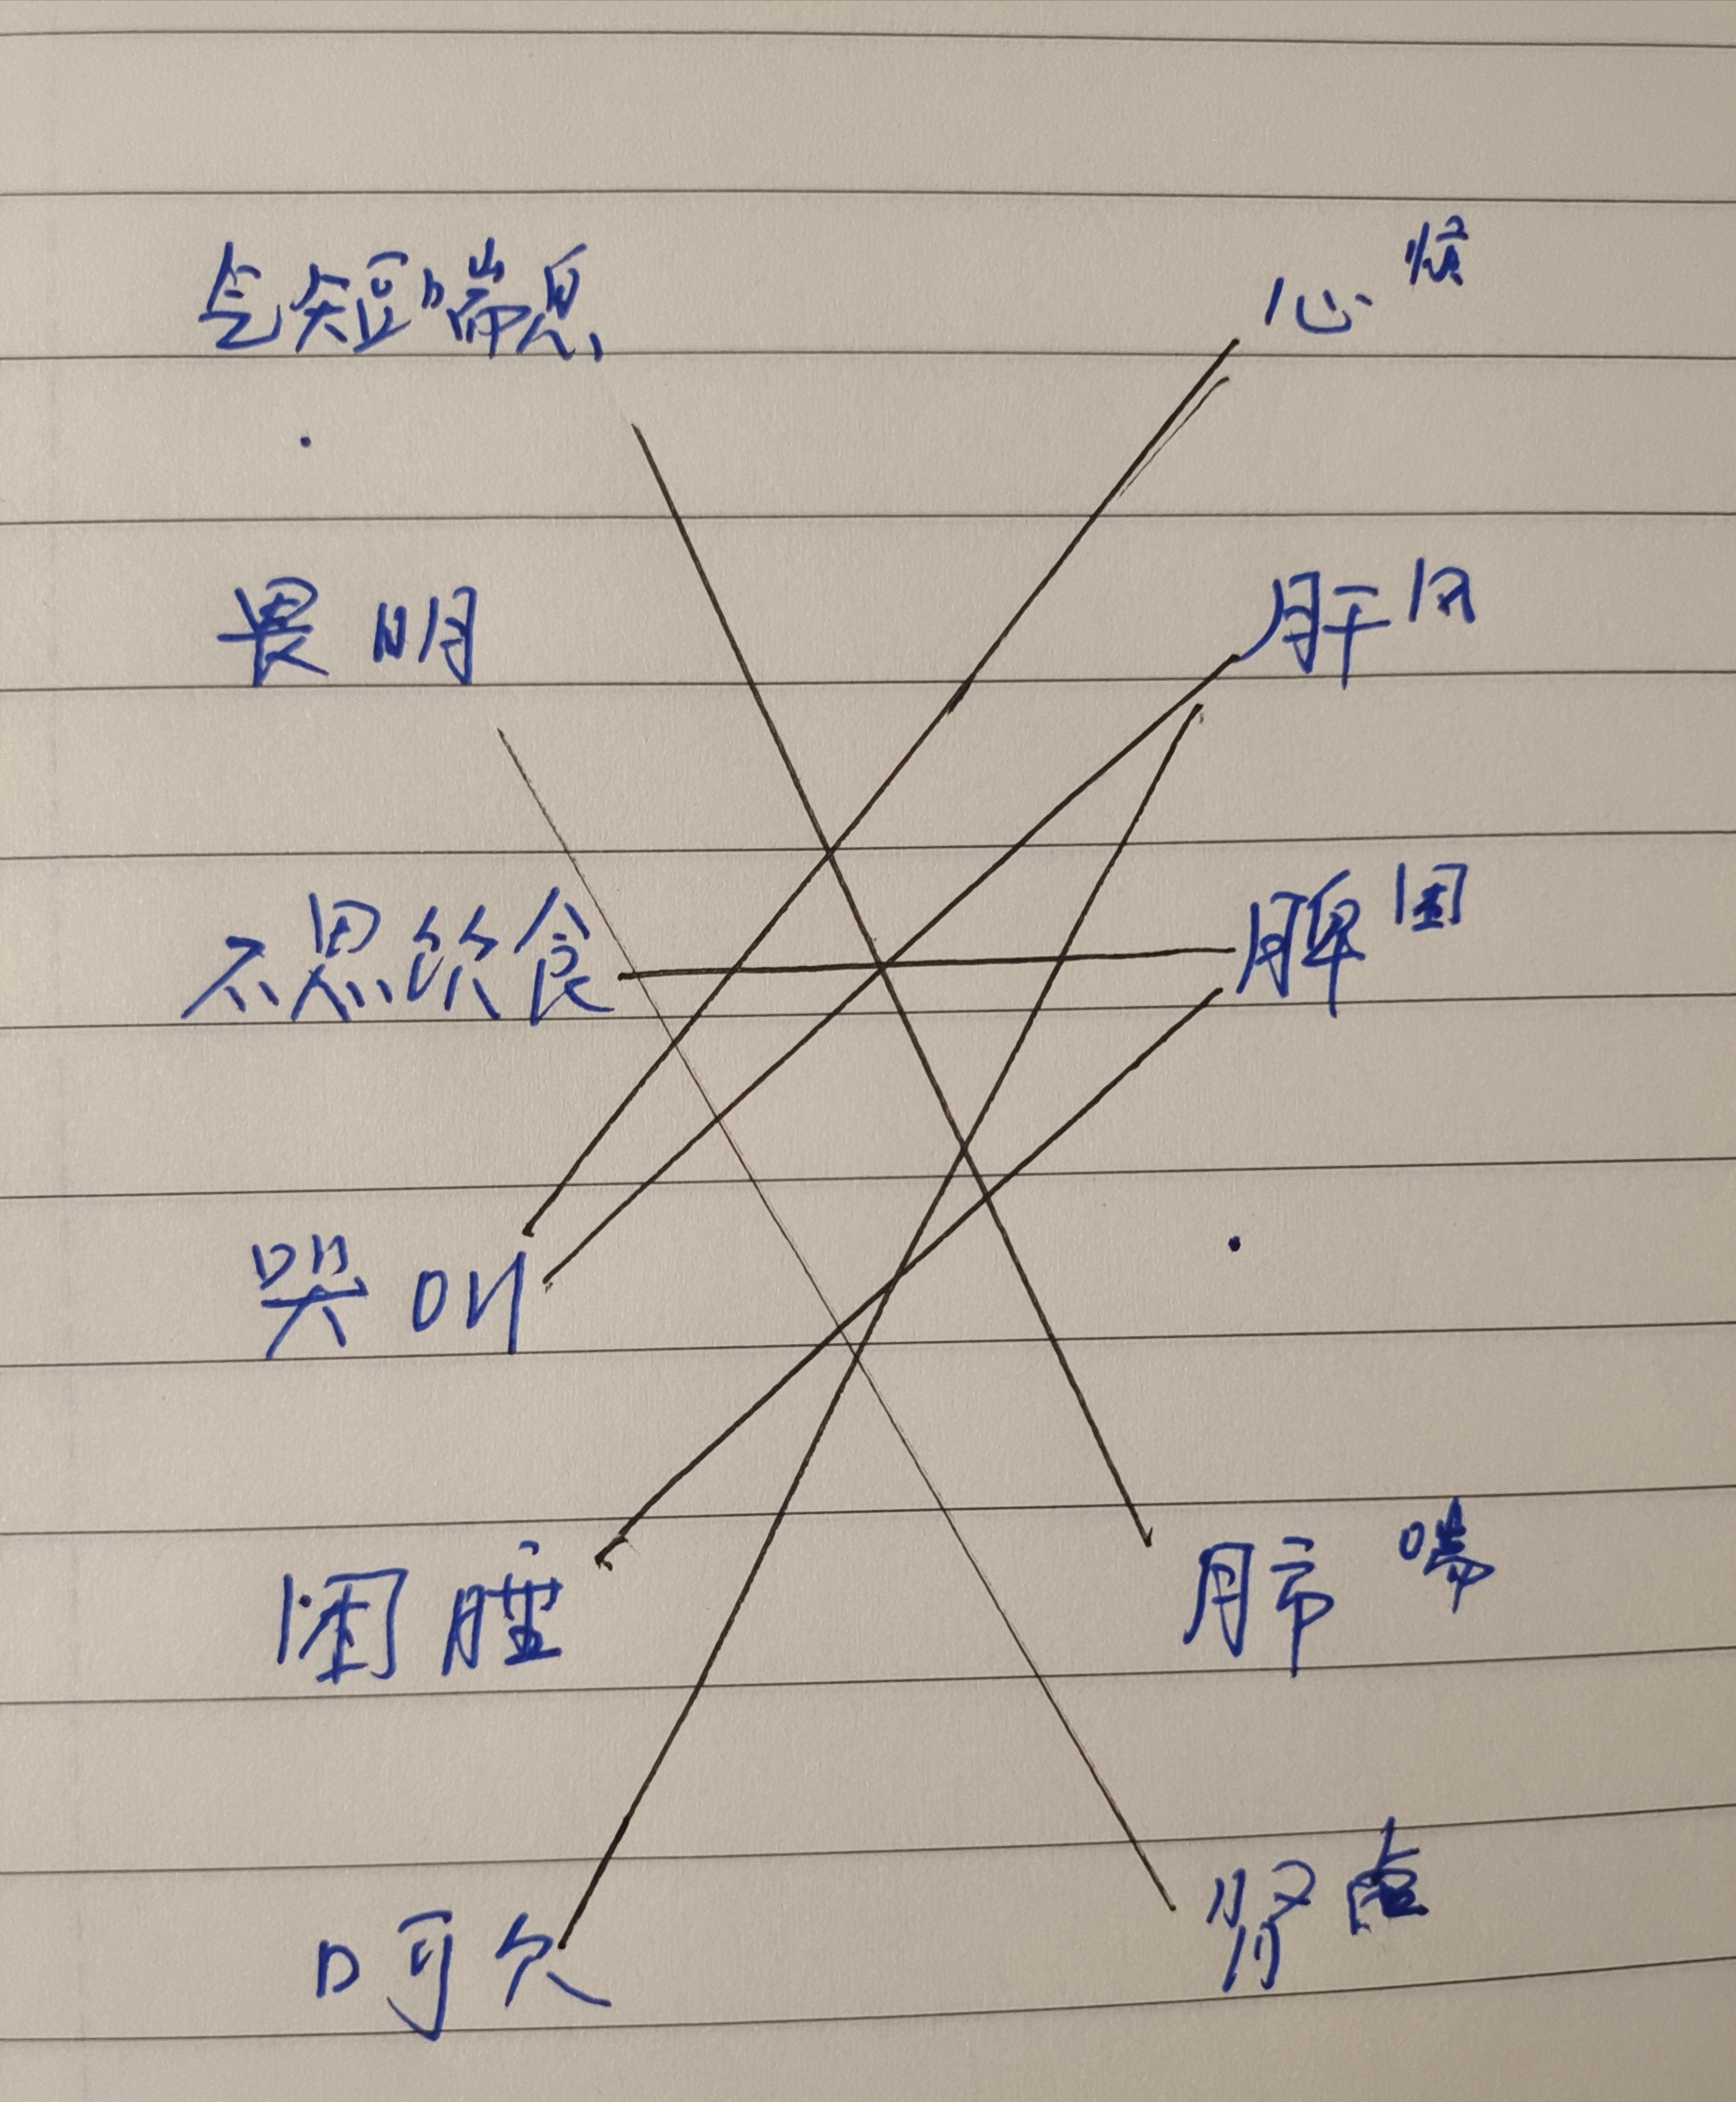 气短喘息 心烦
畏明 肝风
不思饮食 脾困
哭叫
困睡 肺喘
呵欠 肾虚